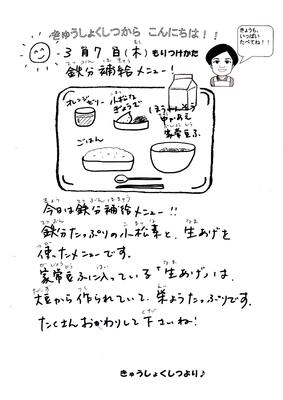 きゅうしょくしつから こんにちは!!
きょうも、
いっぱい
たべてね!!
3月7日(木) もりつけかた
鉄分補給メニュー!
オレンジゼリー
小松な
ぎょうざ
ほうれんそう
中かあえ
家常豆ふ
ごはん
今日は鉄分補給メニュー!!
鉄分たっぷりの小松菜と、生あげを
使ったメニューです。
家常豆ふに入っている「生あげ」は、
大豆から作られていて、栄ようたっぷりです。
たくさんおかわりして下さいね!
きゅうしょくしつより♪